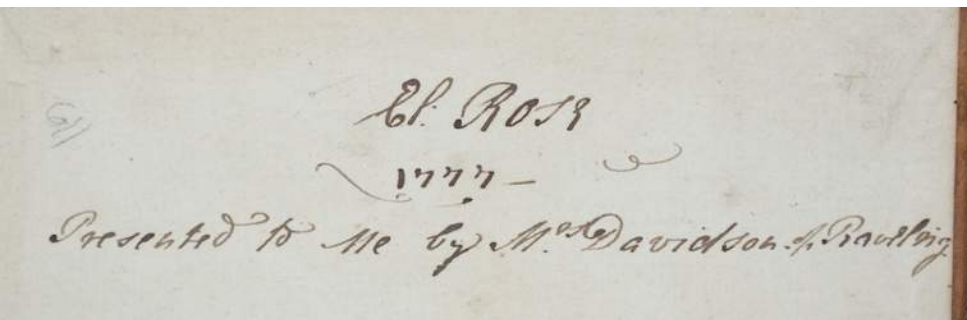 El: Rose
1777 –
Presented to Me by Mrs Davidson of